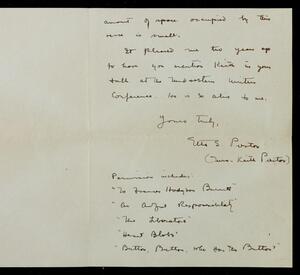 amount of space occupied by this
verse is small.
It pleased me two years ago
to have you mention Keith in your
talk at the Midwestern Writers
Conference. He is so also to me.
Yours truly,
Ella S. Preston
(Mrs. Keith Preston)
Permission includes:
"To Frances Hodgson Burnett"
"An Awful Responsibility"
"The Liberators"
"Heart Blobs"
"Button, Button, Who Has The Button?"